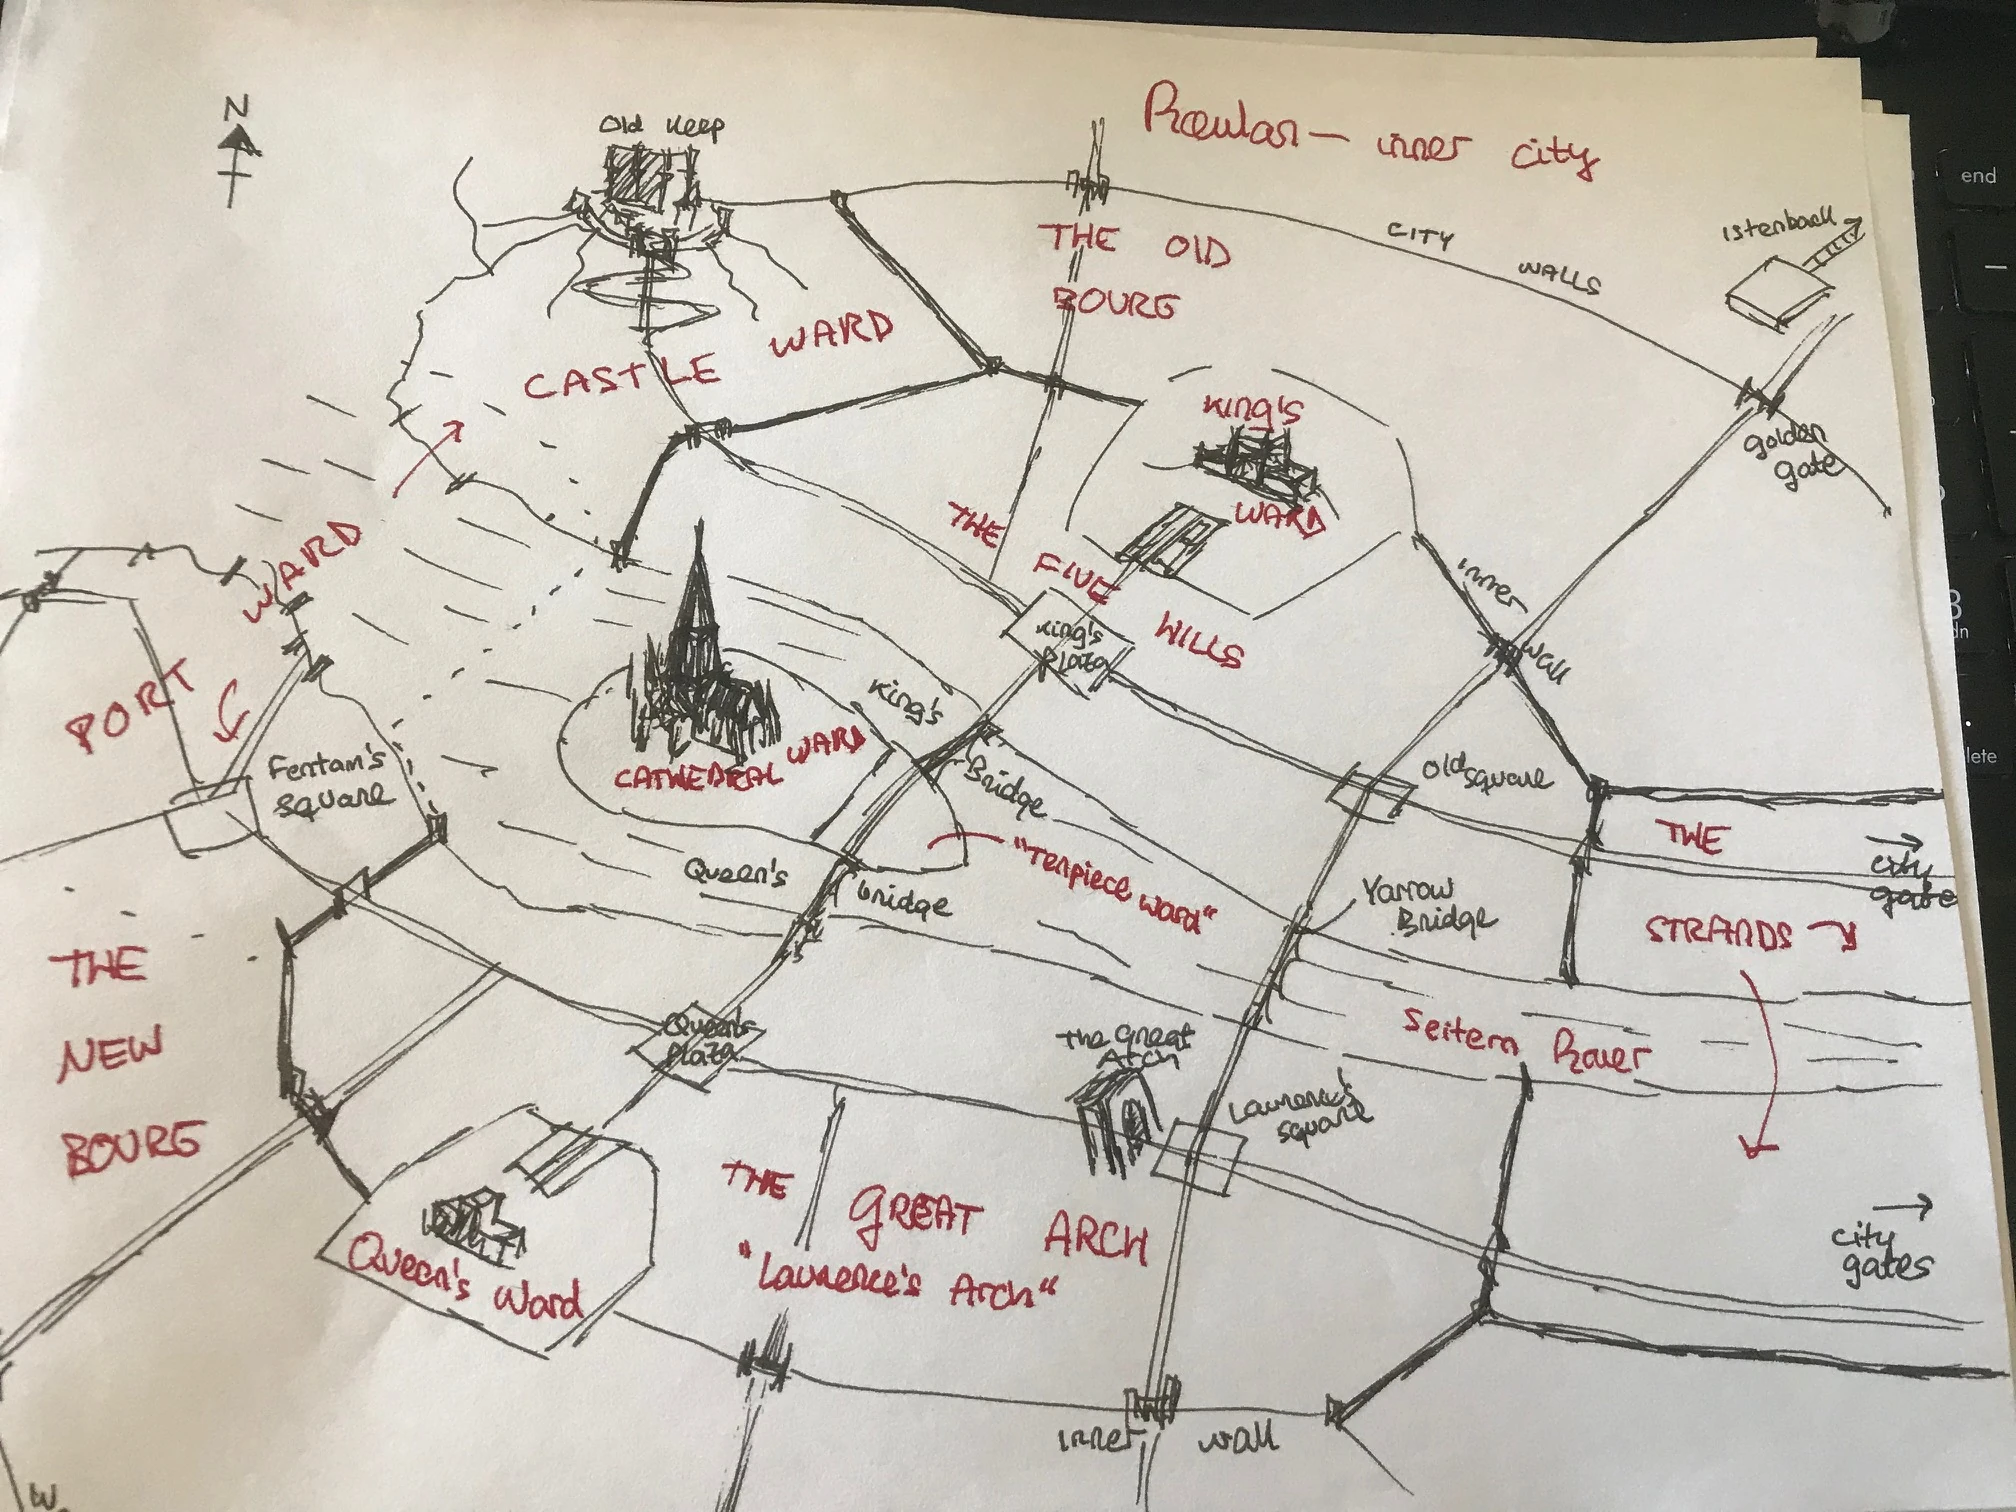 N
Old Keep
inner city
CITY WALLS
Istenback
THE OLD
BOURG
CASTLE WARD
King's
WARD
golden
gate
THE
FIVE
HILLS
King's
Plaza
inner
wall
WARD
PORT
Fentam's
square
CATHEDRAL WARD
King's
Bridge
Old square
THE
STRANDS
city
gate
Queen's
bridge
"Tenpiece ward"
Yarrow
Bridge
THE
NEW
BOURG
Queen's
Plaza
The Great
Arch
Seitern River
Laurence's
square
THE GREAT ARCH
"Laurence's Arch"
Queen's Ward
city
gates
inner wall